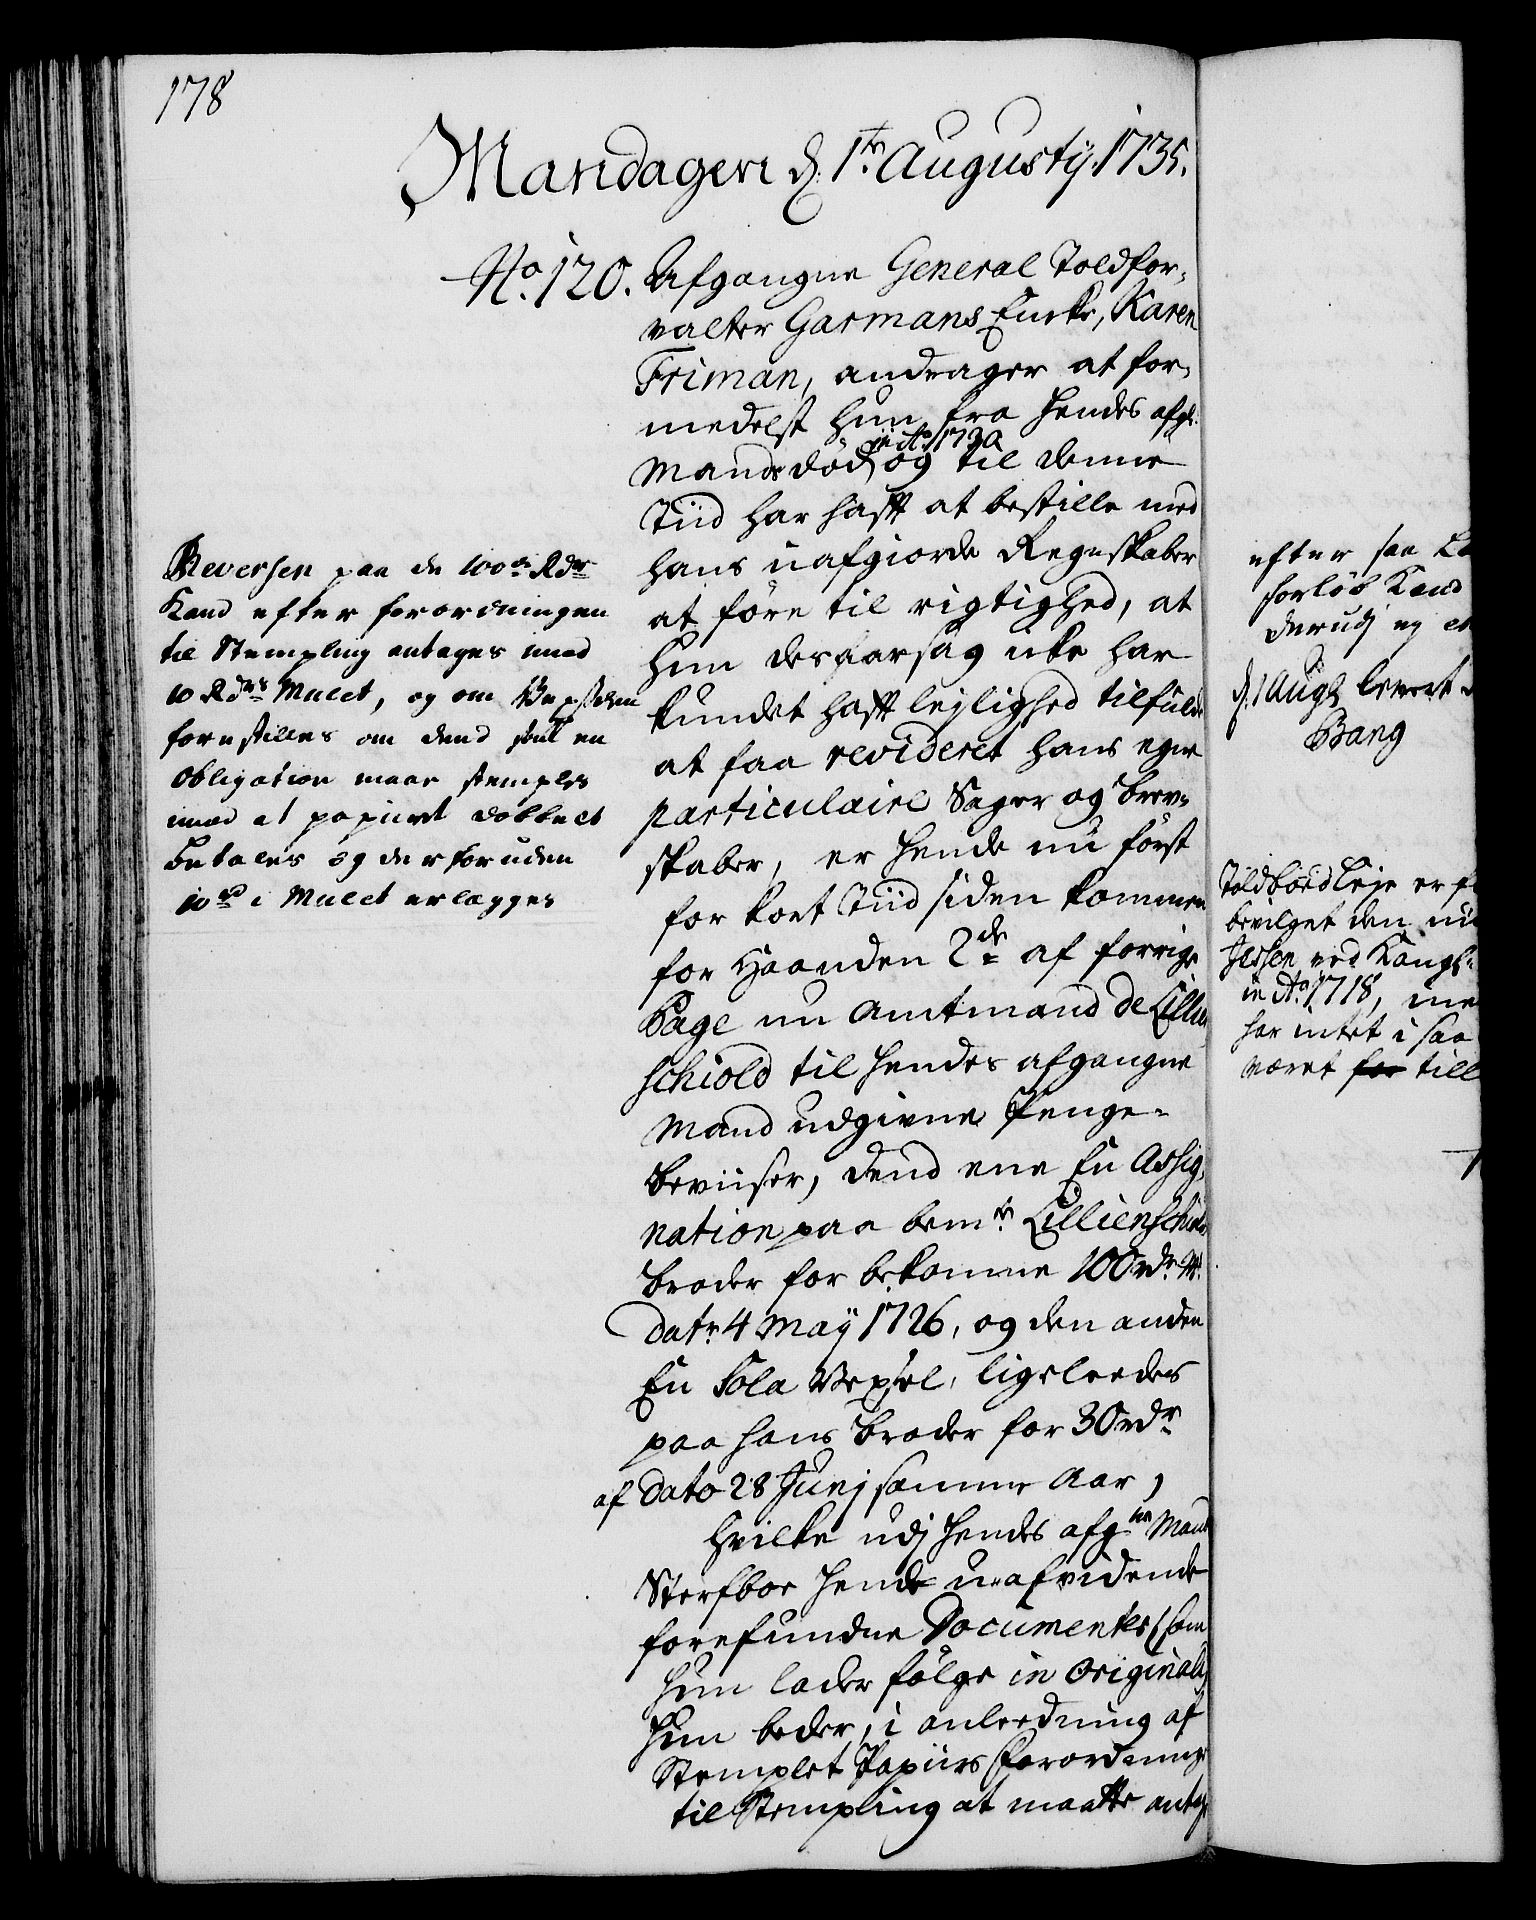 178
Mandagen d. 1te Augustij 1735.
No. 120. Afgangne General Toldfor-
valter Garmans Encke, Karen
Friman, andrager at for-
medelst hun fra hendes afg:
Mands död in Ao 1730 og til denne
Tiid har hafft at bestille med
hans uafgiorde Regnskaber
at före til rigtighed, at
hun desaarsag icke har
kundet hafft leylighed tilfulde
at faa revideret hans egne
particulaire Sager og brev-
skaber, er hende nu först
for kort Tiid siden kommen
for Haanden 2de af forrige
Page nu Amtmand de Lillien
schiold til hendes afgangne
Mand udgivne Penge-
beviiser, dend ene En Assig-
nation paa bemte Lillienschiolds
broder for bekomne 100 rdr
datr 4 Maÿ 1726, og den anden
En Sola Vexel, ligeleedes
paa hans broder for 30 rdr
af dato 28 Junj samme Aar,
hvilke udj hendes afgne Mands
Sterfboe hende u-afvidende
forefundne Documenter (som
hun lader fölge in Originali)
hun beder, i anleedning af
Stemplet Papiirs Forordninge
til Stempling at maatte antage
Reversen paa de 100de Rdr
Kand efter forordningen
til Stempling antages imod
10 Rdrs Mulct, og om Vexelen
forestilles om dend som en
Obligation maae stemples
imod at papiret dobbelt
betales og derforuden
10 rd i Mulct erlægges
efter saa
forlöb Kand
derudj ey
d. 1 Aug levert
Bang
Toldboed Leje er
bevilget den
Jessen ved Kongl-
in Ao 1718,
har intet i saa
været for till